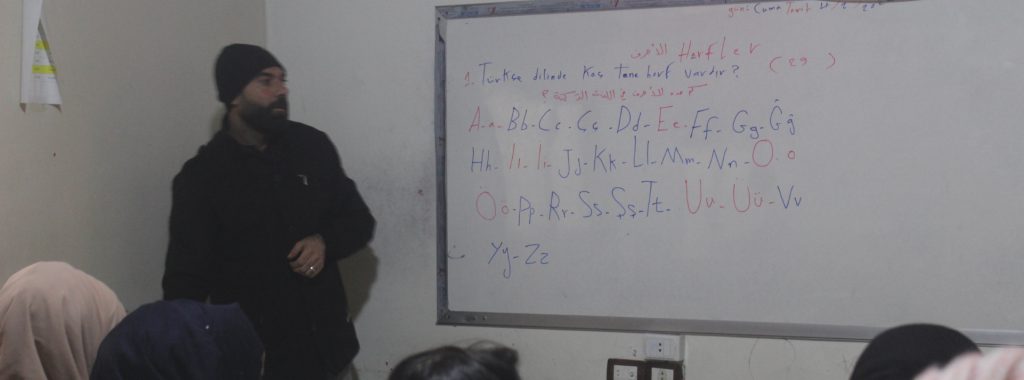 günü Cuma Tarih
الأحرف Harfler
1. Türkçe dilinde Kaç Tane harf vardır? (29)
كم عدد الأحرف في اللغة التركية ؟
A a - Bb - Cc - Çç - Dd - Ee - Ff - Gg - Ğğ
Hh - Iı - İi - Jj - Kk - Ll - Mm - Nn - O o
Öö - Pp - Rr - Ss - Şş - Tt - Uu - Üü - Vv
Yy - Zz